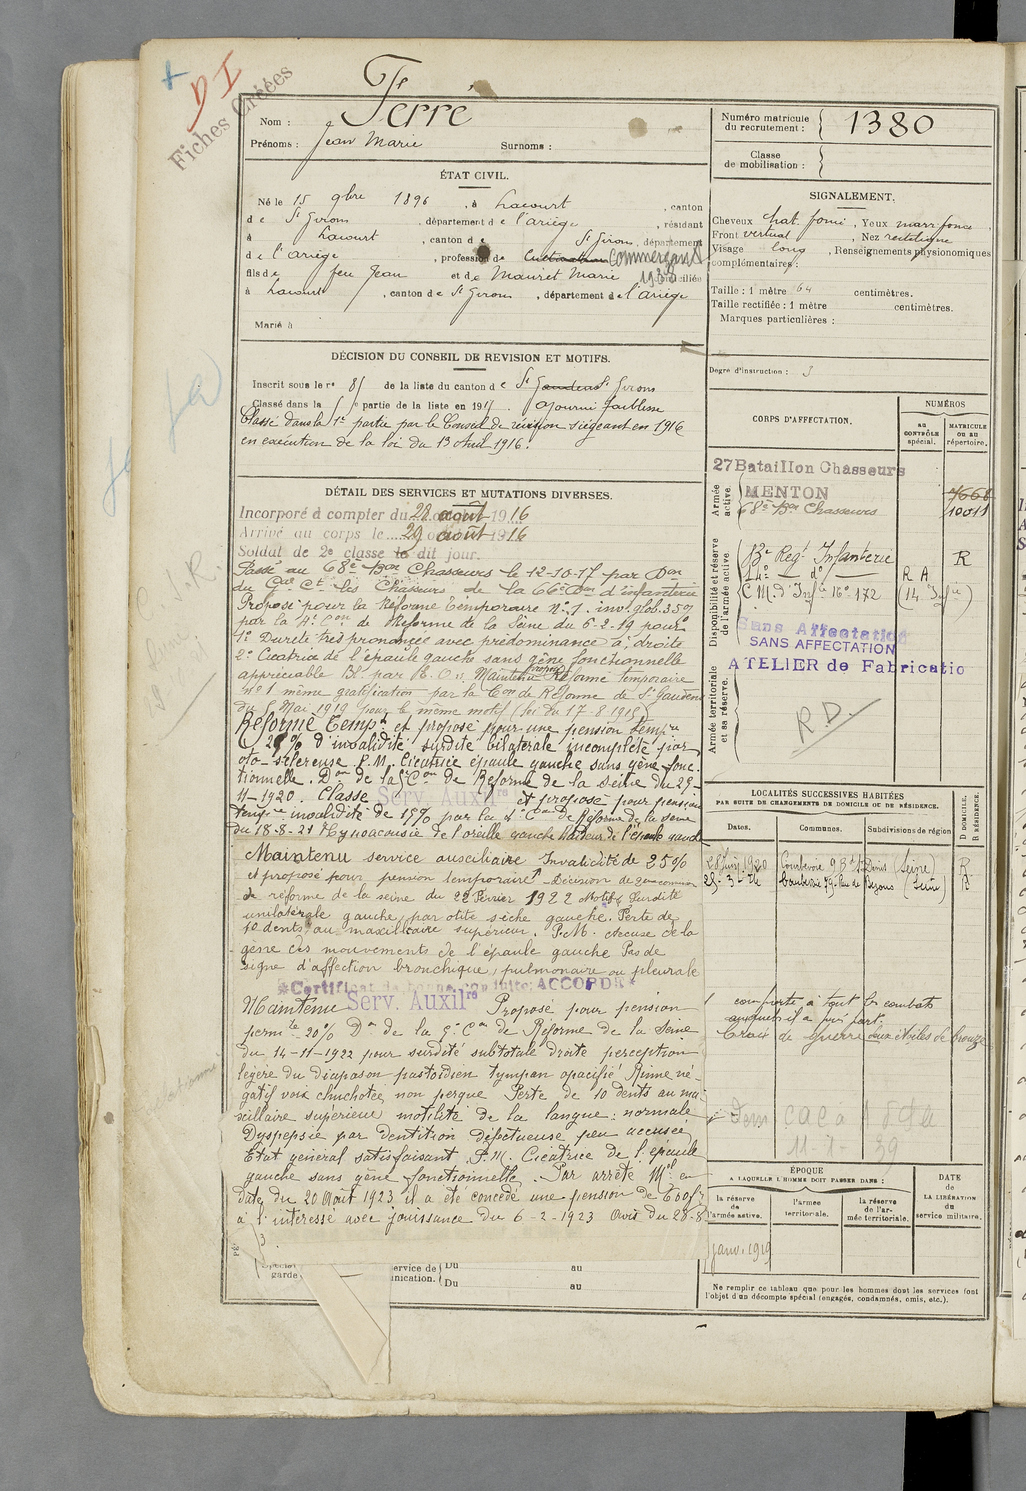 +
D I
Fiches Créées
Nom : Ferré
Prénoms : Jean Marie Surnoms :
Numéro matricule du recrutement : 1380
Classe de mobilisation :
ÉTAT CIVIL.
Né le 15 9bre 1896, à Lacourt, canton
de St Girons, département de l'ariège, résidant
à Lacourt, canton de St Girons, département
de l'ariège, profession de Cultivateur commerçant
1938
fils de feu Jean et de Mauret Marie domiciliée
à Lacourt, canton de St Girons, département de l'ariège
Marié à
SIGNALEMENT.
Cheveux chat. foncé, Yeux marr foncé,
Front vertical, Nez rectiligne
Visage long, Renseignements physionomiques
complémentaires :
Taille : 1 mètre 64 centimètres.
Taille rectifiée : 1 mètre centimètres.
Marques particulières :
Degré d'instruction : 3
DÉCISION DU CONSEIL DE REVISION ET MOTIFS.
Inscrit sous le no 81 de la liste du canton de St Gaudens St Girons
Classé dans la partie de la liste en 191 . Ajourné faiblesse
Classé dans la 1re partie par le Conseil de révision siégeant en 1916
en exécution de la loi du 13 Avril 1916.
DÉTAIL DES SERVICES ET MUTATIONS DIVERSES.
Incorporé à compter du 28 août 1916
Arrivé au corps le 29 août 1916
Soldat de 2e classe le dit jour.
Passé au 68e Bon Chasseurs le 12-10-17 par Don
du Gal Ct les Chasseurs de la 66e Don d'infanterie
Proposé pour la Réforme Temporaire No 1. inv. glob. 35%
par la 4e Con de Réforme de la Seine du 6-2-19 pour
1o Dureté très prononcée avec prédominance à droite
2o Cicatrice de l'épaule gauche sans gêne fonctionnelle
appréciable Bl. par E.O. Maintenu proposé Réforme Temporaire
no 1 même gratification par la Con de Réforme de St Gaudens
du 5 Mai 1919 pour le même motif (loi du 17-8-1915)
Réformé Tempre et proposé pour une pension tempre
20% d'invalidité surdité bilatérale incomplète par
oto-sclereuse. P.M. Cicatrice épaule gauche sans gêne fonc-
tionnelle. Don de la Con de Réforme de la Seine du 29-
11-1920. Classé Serv. Auxilre et proposé pour pension
tempre invalidité de 15% par la Con de Réforme de la Seine
du 18-8-21 Hypoacousie de l'oreille gauche
Maintenu service auxiliaire Invalidité de 25%
et proposé pour pension temporaire Décision de 2eme commion
de réforme de la seine du 22 Février 1922 Motif Surdité
unilatérale gauche, par otite sèche gauche. Perte de
10 dents au maxillaire supérieur. P.M. Accuse de la
gêne des mouvements de l'épaule gauche Pas de
signe d'affection bronchique, pulmonaire ou pleurale
*Certificat de bonne conduite: ACCORDÉ*
Maintenu Serv. Auxilre Proposé pour pension
permte 20% Don de la Con de Réforme de la Seine
du 14-11-1922 pour surdité subtotale droite perception
légère du diapason mastoïdien tympan opacifié Rinne né-
gatif voix chuchotée non perçue Perte de 10 dents au ma-
xillaire supérieur motilité de la langue : normale
Dyspepsie par dentition défectueuse peu accusée
Etat général satisfaisant. P.M. Cicatrice de l'épaule
gauche sans gêne fonctionnelle. Par arrêté Mel en
date du 20 Août 1923 il a été concédé une pension de 600f
à l'intéressé avec jouissance du 6-2-1923 Avis du 28-8
garde
ervice de
nication.
Du au
Du au
CORPS D'AFFECTATION.
NUMÉROS
AU CONTRÔLE spécial.
MATRICULE OU AU répertoire.
Armée active.
27 Bataillon Chasseurs
MENTON 7668
68e Bon Chasseurs 10011
Disponibilité et réserve de l'armée active
Regt Infanterie R
14e do R A
C. M. d'Infie 16e 172 (14e Infie)
Sans Affectation
SANS AFFECTATION
ATELIER de Fabricatio
Armée territoriale et sa réserve.
R.D.
LOCALITÉS SUCCESSIVES HABITÉES
PAR SUITE DE CHANGEMENTS DE DOMICILE OU DE RÉSIDENCE.
Dates. Communes. Subdivisions de région D DOMICILE. R RÉSIDENCE.
28 Juin 1920 Courbevoie 9 Bd St Denis (Seine) R
25-3-24 Courbevoie 79 Rue de Bezons (Seine) R
comporté à tout les combats
auxquels il a pris part.
Croix de guerre deux étoiles de bronze
11-1-39
ÉPOQUE
A LAQUELLE L'HOMME DOIT PASSER DANS :
la réserve de l'armée active.
l'armée territoriale.
la réserve de l'armée territoriale.
DATE de LA LIBÉRATION du service militaire.
janv. 1919
Ne remplir ce tableau que pour les hommes dont les services font
l'objet d'un décompte spécial (engagés, condamnés, omis, etc.).